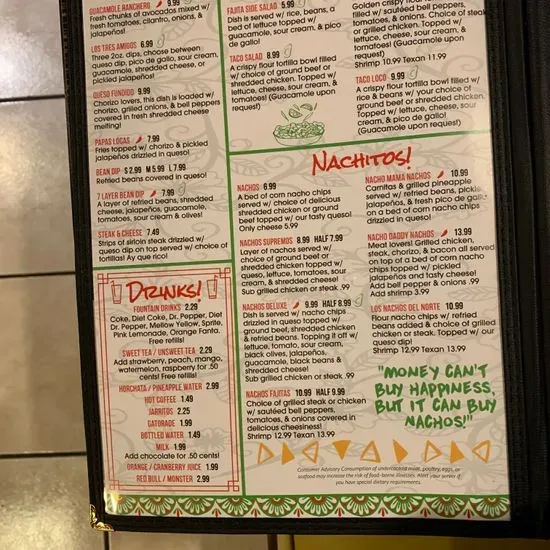 GUACAMOLE RANCHERO 9.99
Fresh chunks of avocados mixed w/
fresh tomatoes, cilantro, onions, &
jalapeños
LOS TRES AMIGOS 6.99
Three 2oz. dips, choose between
queso dip, pico de gallo, sour cream,
guacamole, shredded cheese, or
pickled jalapeños!
QUESO FUNDIDO 9.99
Chorizo lovers, this dish is loaded w/
chorizo, grilled onions, & bell peppers
covered in fresh shredded cheese
melting!
PAPAS LOCAS 7.99
Fries topped w/ chorizo & pickled
jalapeños drizzled in queso!
BEAN DIP S 2.99 M 5.99 L 7.99
Refried beans covered in queso!
7 LAYER BEAN DIP 7.99
A layer of refried beans, shredded
cheese, jalapeños, guacamole,
tomatoes, sour cream & olives!
STEAK & CHEESE 7.49
Strips of sirloin steak drizzled w/
queso dip on top served w/ choice of
tortillas! Ay que rico!
DRINKS!
FOUNTAIN DRINKS 2.29
Coke, Diet Coke, Dr. Pepper, Diet
Dr. Pepper, Mellow Yellow, Sprite,
Pink Lemonade, Orange Fanta.
Free refills!
SWEET TEA / UNSWEET TEA 2.29
Add strawberry, peach, mango,
watermelon, raspberry for .50
cents! Free refills!
HORCHATA / PINEAPPLE WATER 2.99
HOT COFFEE 1.49
JARRITOS 2.25
GATORADE 1.99
BOTTLED WATER 1.49
MILK 1.99
Add chocolate for .50 cents!
ORANGE / CRANBERRY JUICE 1.99
RED BULL / MONSTER 2.99
FAJITA SIDE SALAD 5.99
Dish is served w/ rice, beans, a
bed of lettuce topped w/
guacamole, sour cream, & pico
de gallo!
TACO SALAD 8.99
A crispy flour tortilla bowl filled
w/ choice of ground beef or
shredded chicken. Topped w/
lettuce, cheese, sour cream, &
tomatoes! (Guacamole upon
request)
Golden crispy flour
filled w/ sautéed bell peppers,
tomatoes, & onions. Choice of steak
or chicken, grilled. Topped w/
lettuce, cheese, sour cream, &
tomatoes! (Guacamole upon
request)
Shrimp 10.99 Texan 11.99
TACO LOCO 9.99
A crispy flour tortilla bowl filled w/
rice & beans w/ your choice of
ground beef or shredded chicken.
Topped w/ lettuce, cheese, sour
cream, & pico de gallo! (Guacamole
upon request)
NACHITOS!
NACHOS 6.99
A bed of corn nacho chips
served w/ choice of delicious
shredded chicken or ground
beef topped w/ our tasty queso!
Only cheese 5.99
NACHOS SUPREMOS 8.99 HALF 7.99
Layer of nachos served w/
choice of ground beef or
shredded chicken topped w/
queso, lettuce, tomatoes, sour
cream, & shredded cheese!
Sub grilled chicken or steak .99
NACHOS DELUXE 9.99 HALF 8.99
Dish is served w/ nacho chips
drizzled in queso topped w/
ground beef, shredded chicken
& refried beans. Topping it off w/
lettuce, tomato, sour cream,
black olives, jalapeños,
guacamole, black beans &
shredded cheese!
Sub grilled chicken or steak .99
NACHOS FAJITAS 10.99 HALF 9.99
Choice of grilled steak or chicken
w/ sautéed bell peppers,
tomatoes, & onions covered in
delicious cheesiness!
Shrimp 12.99 Texan 13.99
NACHO MAMA NACHOS 10.99
Carnitas & grilled pineapple
served w/ refried beans, pickled
jalapeños, & fresh pico de gallo
on a bed of corn nacho chips
drizzled in queso!
NACHO DADDY NACHOS 13.99
Meat lovers! Grilled chicken,
steak, chorizo, & bacon all served
on top of a bed of corn nacho
chips topped w/ pickled
jalapeños and tasty cheese!
Add bell pepper & onions .99
Add shrimp 3.99
LOS NACHOS DEL NORTE 10.99
Flour nacho chips w/ refried
beans added & choice of grilled
chicken or steak. Topped w/ our
queso dip!
Shrimp 12.99 Texan 13.99
"MONEY CAN'T
BUY HAPPINESS,
BUT IT CAN BUY
NACHOS!"
Consumer Advisory Consumption of undercooked meat, poultry, eggs, or
seafood may increase the risk of food-borne illnesses. Alert your server if
you have special dietary requirements.